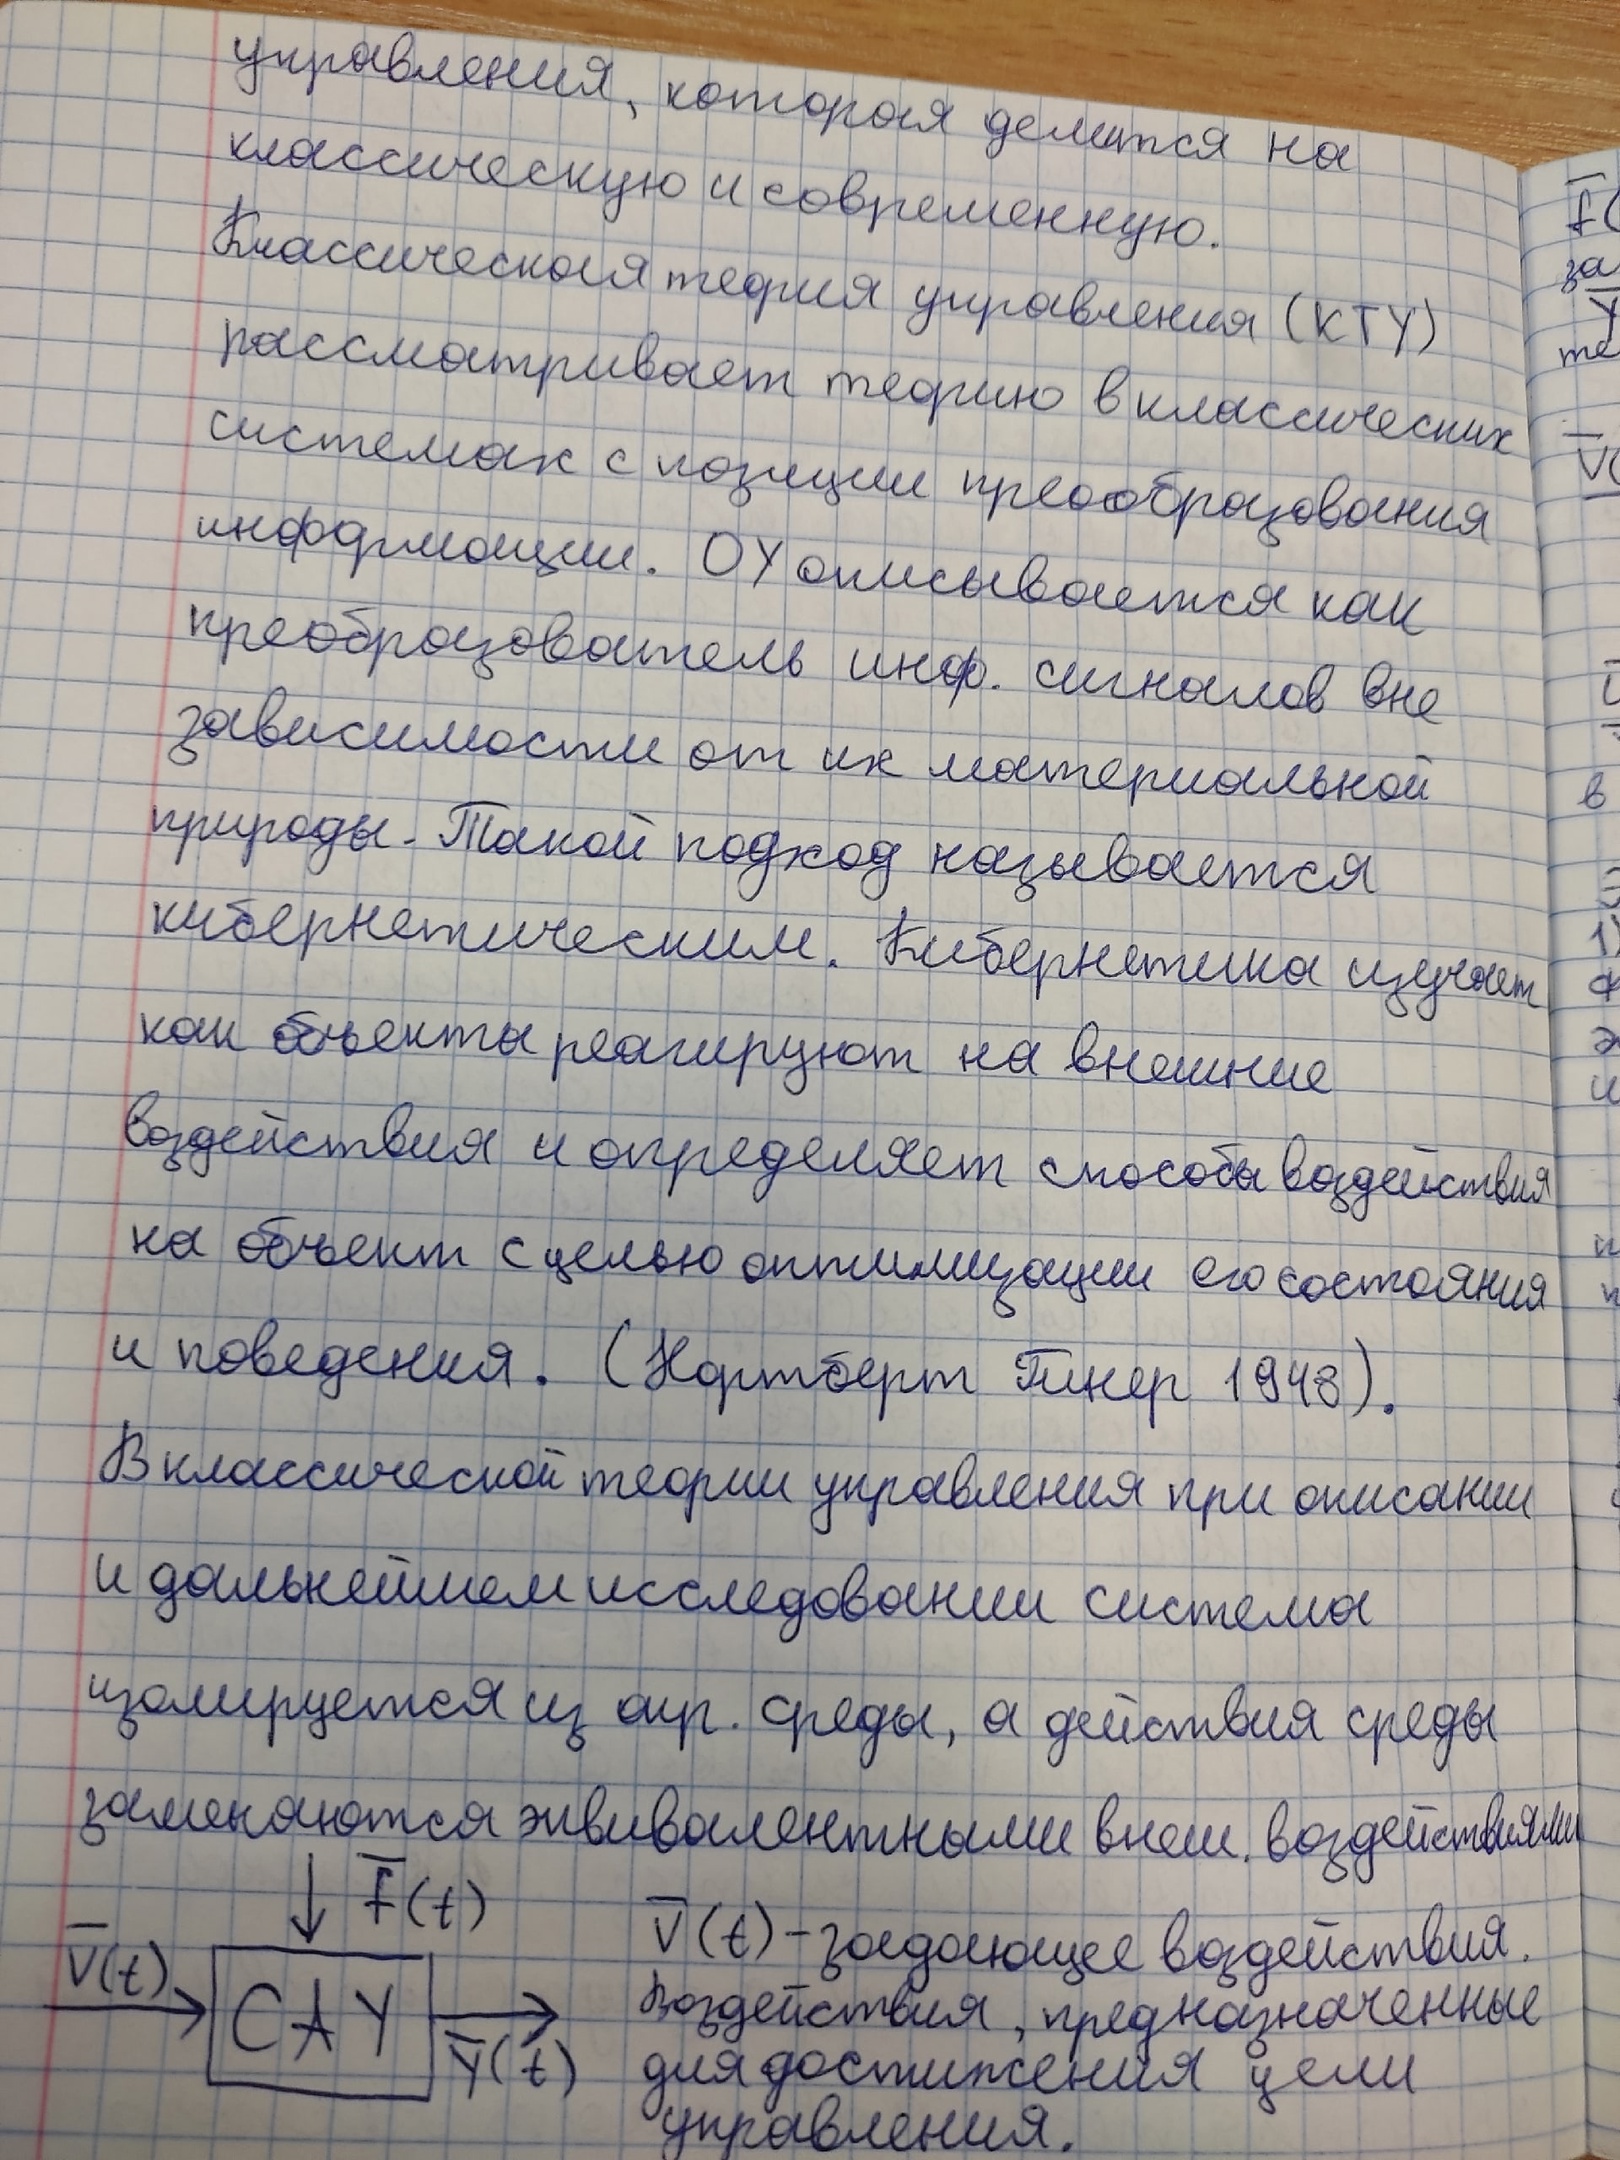 управления, которая делится на
классическую и современную.
Классическая теория управления (КТУ)
рассматривает теорию в классических
системах с позиции преообразования
информации. ОУ описывается как
преобразователь инф. сигналов вне
зависимости от их материальной
природы. Такой подход называется
кибернетическим. Кибернетика изучает
как объекты реагируют на внешние
воздействия и определяет способы воздействия
на объект с целью оптимизации его состояния
и поведения. (Нортберт Пинер 1948).
В классической теории управления при описании
и дальнейшем исследовании система
изолируется из окр. среды, а действия среды
заменяются эквивалентными внеш. воздействиями
f̅(t)
v̅(t)
САУ
y̅(t)
v̅(t) - задающее воздействия.
Воздействия, предназначенные
для достижения цели
управления.